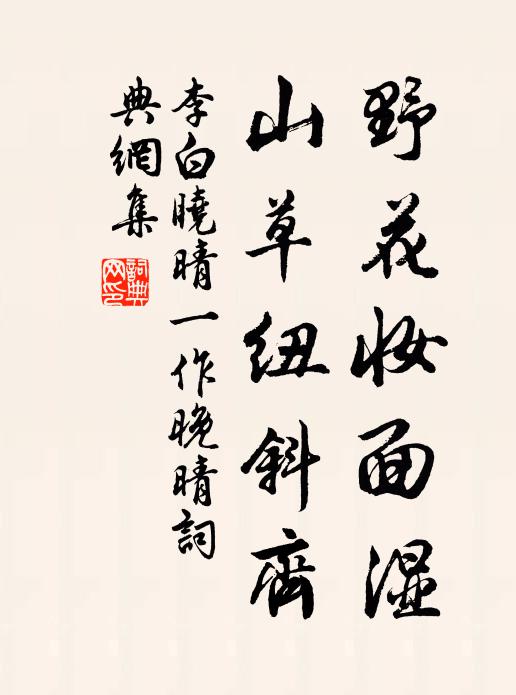 野花妆面湿
山草纽斜齊
李白曉晴一作晚晴詞
典網集
詞典
网印